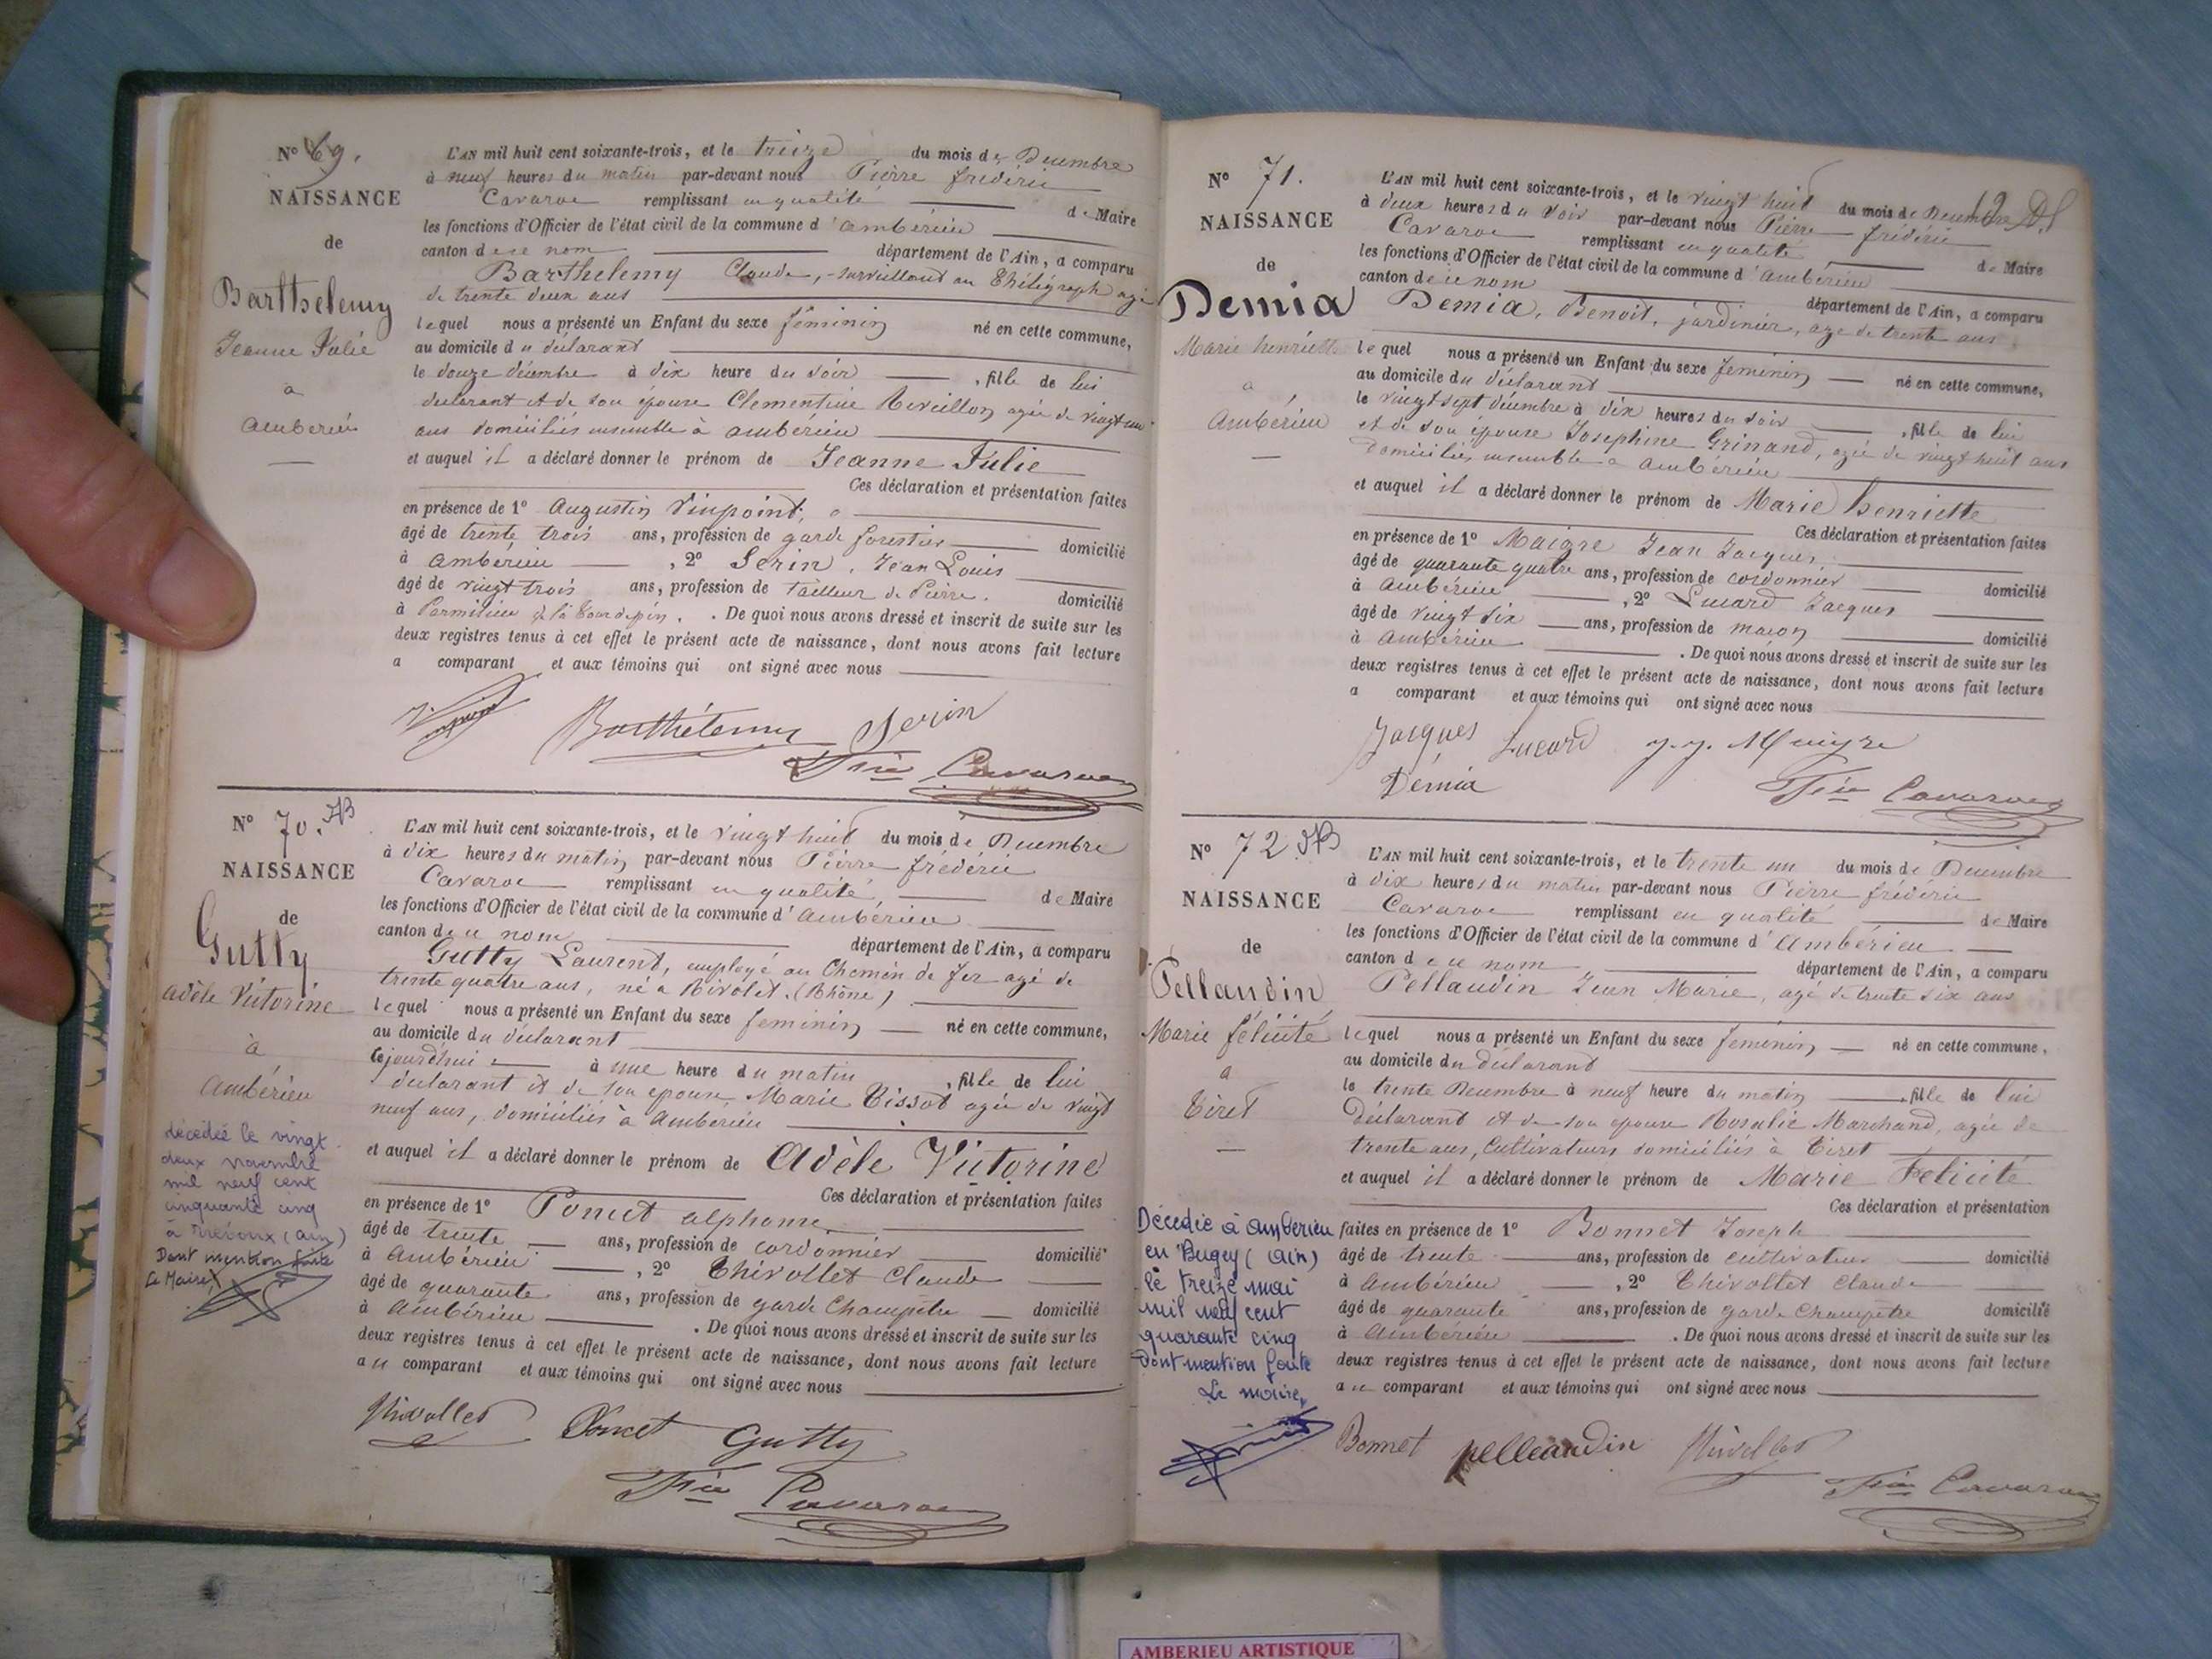 N° 69.
NAISSANCE
de
Barthelemy
Jeanne Julie
à
Ambérieu
L'AN mil huit cent soixante-trois, et le treize du mois de Decembre
à neuf heures du matin par-devant nous Pierre frédéric
Cavaroc remplissant en qualité de Maire
les fonctions d'Officier de l'état civil de la commune d'ambérieu
canton de ce nom département de l'Ain, a comparu
Barthelemy Claude, surveillant au Thélégraph agé
de trente deux ans
lequel nous a présenté un Enfant du sexe féminin né en cette commune,
au domicile du déclarant
le douze décembre à dix heure du soir, fille de lui
déclarant et de son épouse Clementine Reveillon agée de vingt un
ans domiciliés ensemble à ambérieu
et auquel il a déclaré donner le prénom de Jeanne Julie
Ces déclaration et présentation faites
en présence de 1° Augustin Vinpoint,
âgé de trente trois ans, profession de garde forestier domicilié
à ambérieu, 2° Serin, Jean Louis
âgé de vingt trois ans, profession de tailleur de Pierre. domicilié
à Parmilieu . De quoi nous avons dressé et inscrit de suite sur les
deux registres tenus à cet effet le présent acte de naissance, dont nous avons fait lecture
a comparant et aux témoins qui ont signé avec nous
Barthélemy Serin
Fric Cavaroc
N° 70.
NAISSANCE
de
Gutty
Adèle Victorine
à
Ambérieu
décédée le vingt
deux novembre
mil neuf cent
cinquante cinq
à Trévoux (Ain)
Dont mention faite
Le Maire,
L'AN mil huit cent soixante-trois, et le vingt huit du mois de Decembre
à dix heures du matin par-devant nous Pierre frédéric
Cavaroc remplissant en qualité de Maire
les fonctions d'Officier de l'état civil de la commune d'Ambérieu
canton de ce nom département de l'Ain, a comparu
Gutty Laurent, employé au Chemin de fer agé de
trente quatre ans, né à Rivolet. (Rhône)
lequel nous a présenté un Enfant du sexe feminin né en cette commune,
au domicile du déclarant
cejourdhui à une heure du matin, fille de lui
déclarant et de son epouse Marie Tissot agée de vingt
neuf ans, domiciliés à Ambérieu
et auquel il a déclaré donner le prénom de Adèle Victorine
Ces déclaration et présentation faites
en présence de 1° Poncet alphonse
âgé de trente ans, profession de cordonnier domicilié
à Ambérieu, 2° Thivollet Claude
âgé de quarante ans, profession de garde Champêtre domicilié
à Ambérieu. De quoi nous avons dressé et inscrit de suite sur les
deux registres tenus à cet effet le présent acte de naissance, dont nous avons fait lecture
au comparant et aux témoins qui ont signé avec nous
Thivollet Poncet Gutty
Fric Cavaroc
N° 71.
NAISSANCE
de
Demia
Marie henriette
à
Ambérieu
L'AN mil huit cent soixante-trois, et le vingt huit du mois de Decembre
à deux heures du soir par-devant nous Pierre frédéric
Cavaroc remplissant en qualité de Maire
les fonctions d'Officier de l'état civil de la commune d'Ambérieu
canton de ce nom département de l'Ain, a comparu
Demia, Benoit, jardinier, age de trente ans
lequel nous a présenté un Enfant du sexe féminin né en cette commune,
au domicile du déclarant
le vingt sept décembre à dix heures du soir, fille de lui
et de son épouse Josephine Grinand, agée de vingt huit ans
domiciliés ensemble à Ambérieu
et auquel il a déclaré donner le prénom de Marie henriette
Ces déclaration et présentation faites
en présence de 1° Maigre Jean Jacques
âgé de quarante quatre ans, profession de cordonnier domicilié
à Ambérieu, 2° Lucard Jacques
âgé de vingt six ans, profession de maçon domicilié
à Ambérieu. De quoi nous avons dressé et inscrit de suite sur les
deux registres tenus à cet effet le présent acte de naissance, dont nous avons fait lecture
a comparant et aux témoins qui ont signé avec nous
Jacques Lucard J. J. Maigre
Démia Fric Cavaroc
N° 72
NAISSANCE
de
Pellaudin
Marie félicité
à
Tiret
Décédée à Ambérieu
en Bugey (Ain)
le treize mai
mil neuf cent
quarante cinq
dont mention faite
Le maire,
L'AN mil huit cent soixante-trois, et le trente un du mois de Decembre
à dix heures du matin par-devant nous Pierre frédéric
Cavaroc remplissant en qualité de Maire
les fonctions d'Officier de l'état civil de la commune d'Ambérieu
canton de ce nom département de l'Ain, a comparu
Pellaudin Jean Marie, agé de trente six ans
lequel nous a présenté un Enfant du sexe féminin né en cette commune,
au domicile du déclarant
le trente Decembre à neuf heure du matin, fille de lui
Déclarant et de son epouse Rosalie Marchand, agée de
trente ans, Cultivateurs domiciliés à Tiret
et auquel il a déclaré donner le prénom de Marie Felicité
Ces déclaration et présentation
faites en présence de 1° Bonnet Joseph
âgé de trente ans, profession de cultivateur domicilié
à Ambérieu, 2° Thivollet Claude
âgé de quarante ans, profession de garde Champêtre domicilié
à Ambérieu. De quoi nous avons dressé et inscrit de suite sur les
deux registres tenus à cet effet le présent acte de naissance, dont nous avons fait lecture
au comparant et aux témoins qui ont signé avec nous
Bonnet pelleaudin Thivollet
Fric Cavaroc
AMBERIEU ARTISTIQUE